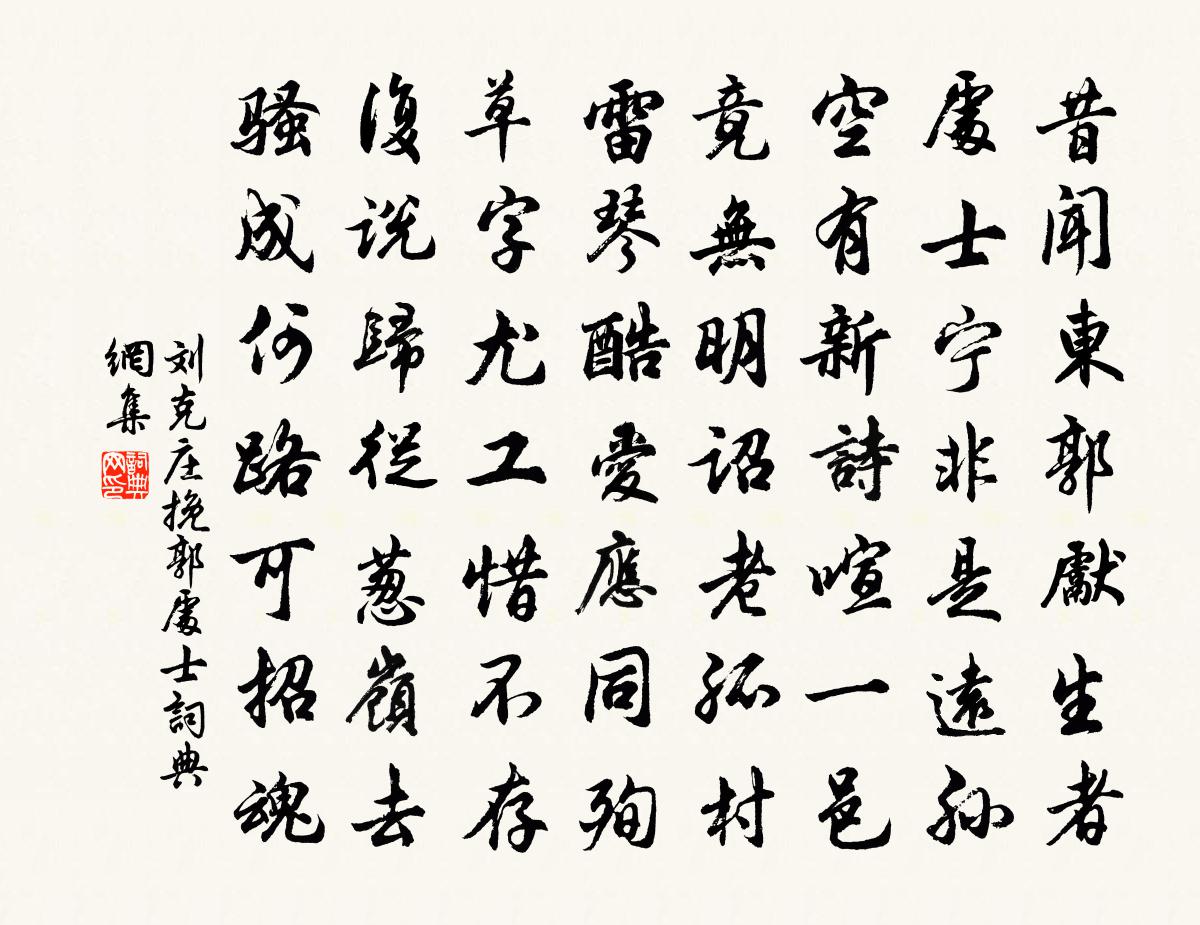 昔聞東郭獻生者
處士宁非是遠孫
空有新詩喧一邑
竟無明詔老孤村
雷琴酷愛應同殉
草字尤工惜不存
復说歸從葱嶺去
騷成何路可招魂
刘克庄挽郭處士詞典
網集
詞典
网印